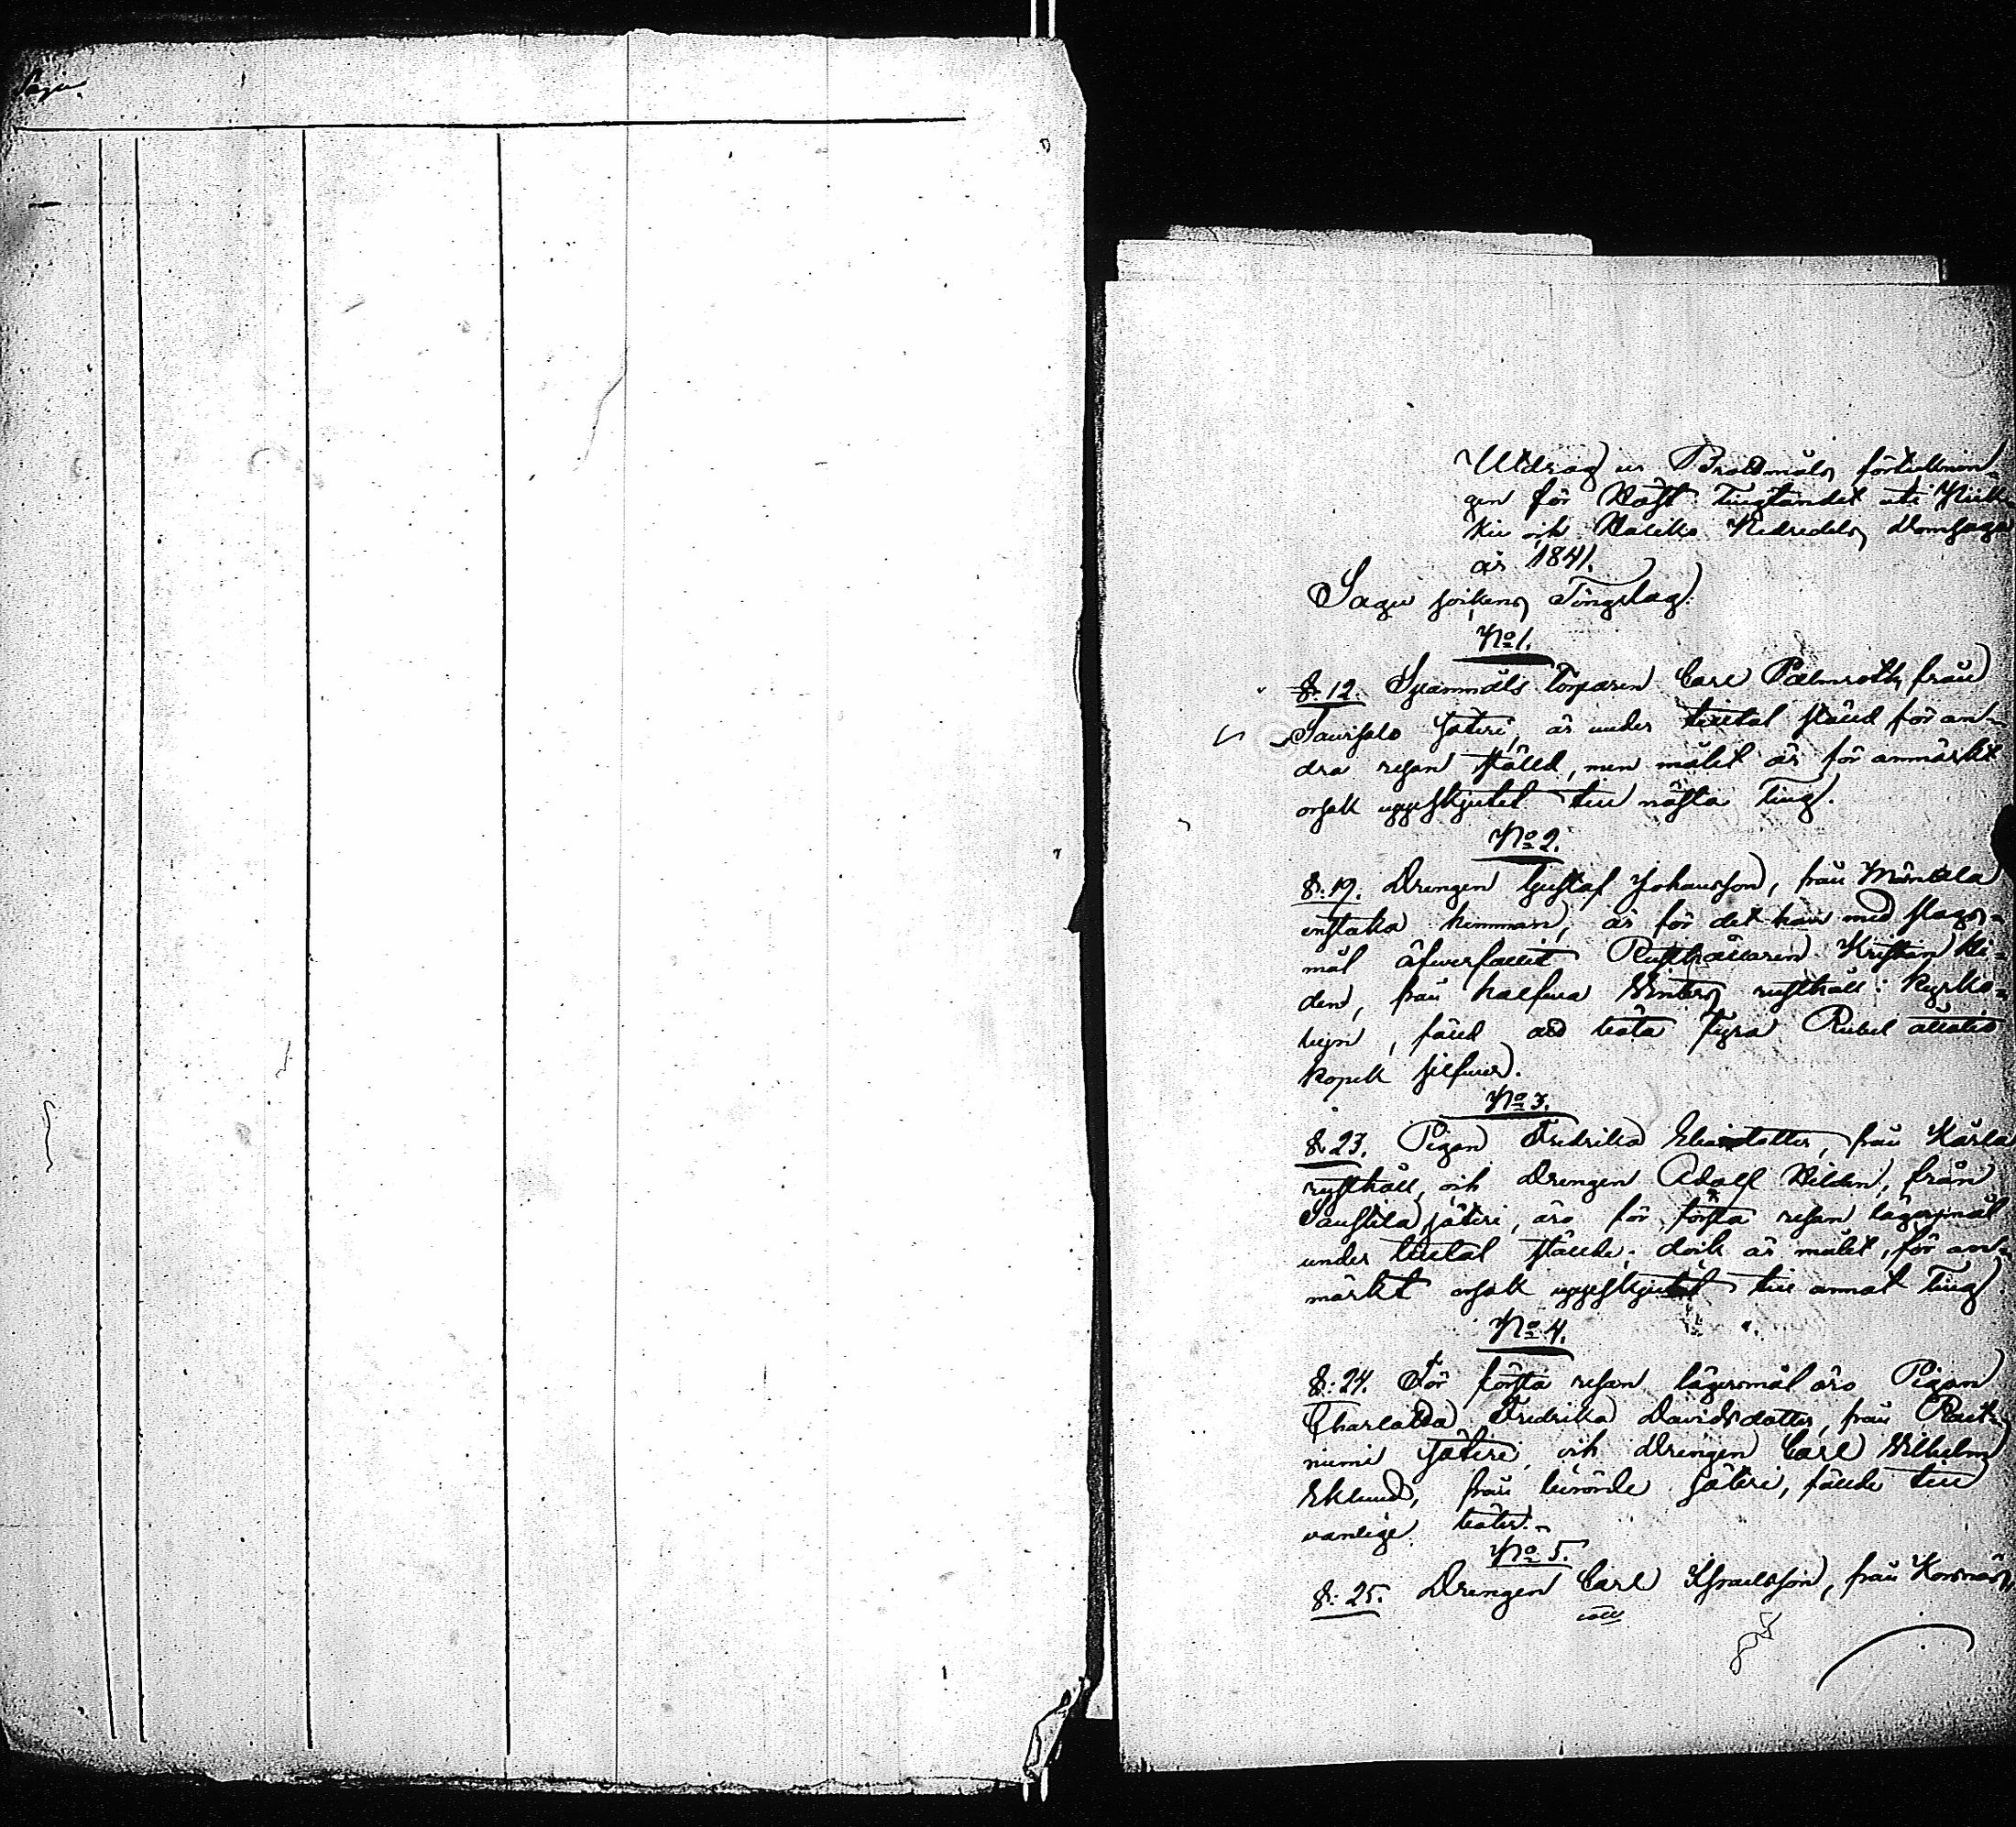 Sagu.
Utdrag ur Brottmåls förtecknin-
gen för Höst Tingtandet uti Piik-
kis och Haliko Nedredels Domsaga
år 1841.
Sagu sockens Tingslag.
No 1.
§. 12. Spannmåls Torparen Carl Palmroth, från
säteri, är under tilltal stäld för an-
dra resan stöld, men målet är för anmärkt
orsak uppskjutet till nästa Ting.
No 2.
§. 19. Drengen Gustaf Johansson, från
enstaka hemman, är för det han med slags-
mål öfwerfallit Rusthållaren Kristian
den, från halfwa rusthåll i Kyrko-
byn, fäld att böta Fyra Rubel åttatio
kopek silfwer.
No 3.
§. 23. Pigan Fredrika Eliaedotter, från Karla
rusthåll, och Drengen Adolf Wildén, från
säteri, äro för första resan lägersmål
under tilltal stälde; dock är målet, för an-
märkt orsak uppskjutet till annat Ting
No 4.
§: 24. För första resan lägersmål äro Pigan
Charlotta Fredrika Davidsdotter, från
niemi säteri, och Drengen Carl Wilhelm
Eklund, från berörde säteri, fälde till
vanlige böter.-
No 5.
§: 25. Drengen Carl Israelsson, från Korsnäs